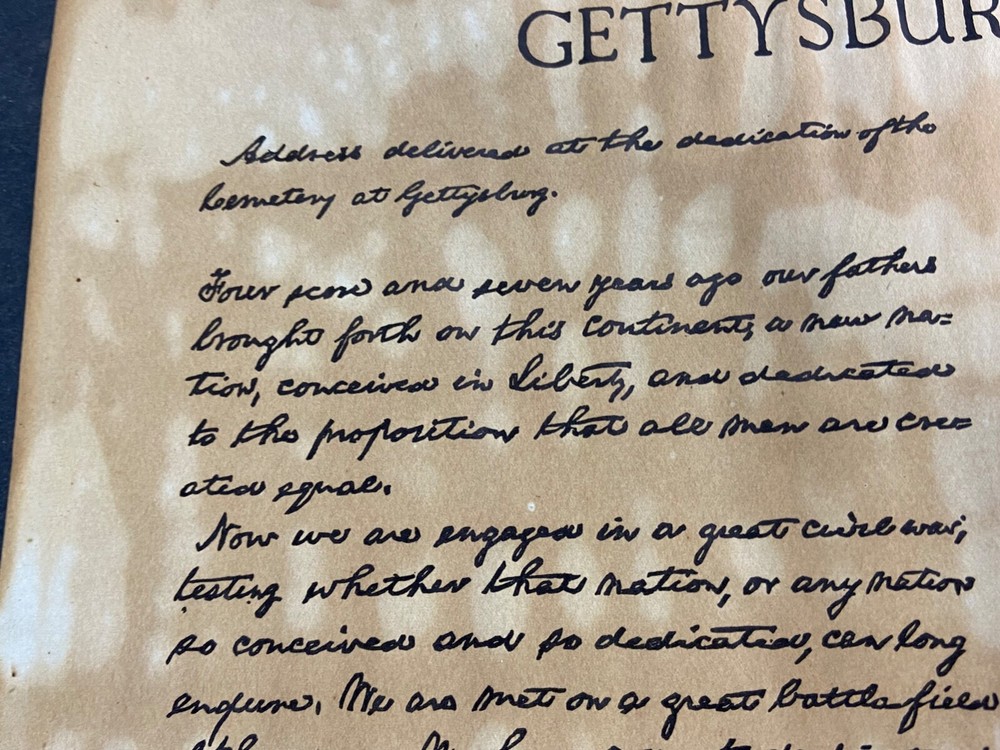 GETTYSBUR
Address delivered at the dedication of the
Cemetery at Gettysburg.
Four score and seven years ago our fathers
brought forth on this continent, a new na=
tion, conceived in Liberty, and dedicated
to the proposition that all men are cre=
ated equal.
Now we are engaged in a great civil war,
testing whether that nation, or any nation
so conceived and so dedicated, can long
endure. We are met on a great battle-field